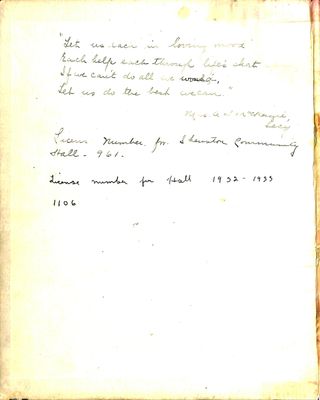 "Let us each in loving mood
Each help each through life's short
If we can't do all we would,
Let us do the best we can."
Mrs. A.
Secy
Licens Number for Community
Hall - 961.
License number for Hall 1932 - 1933
1106